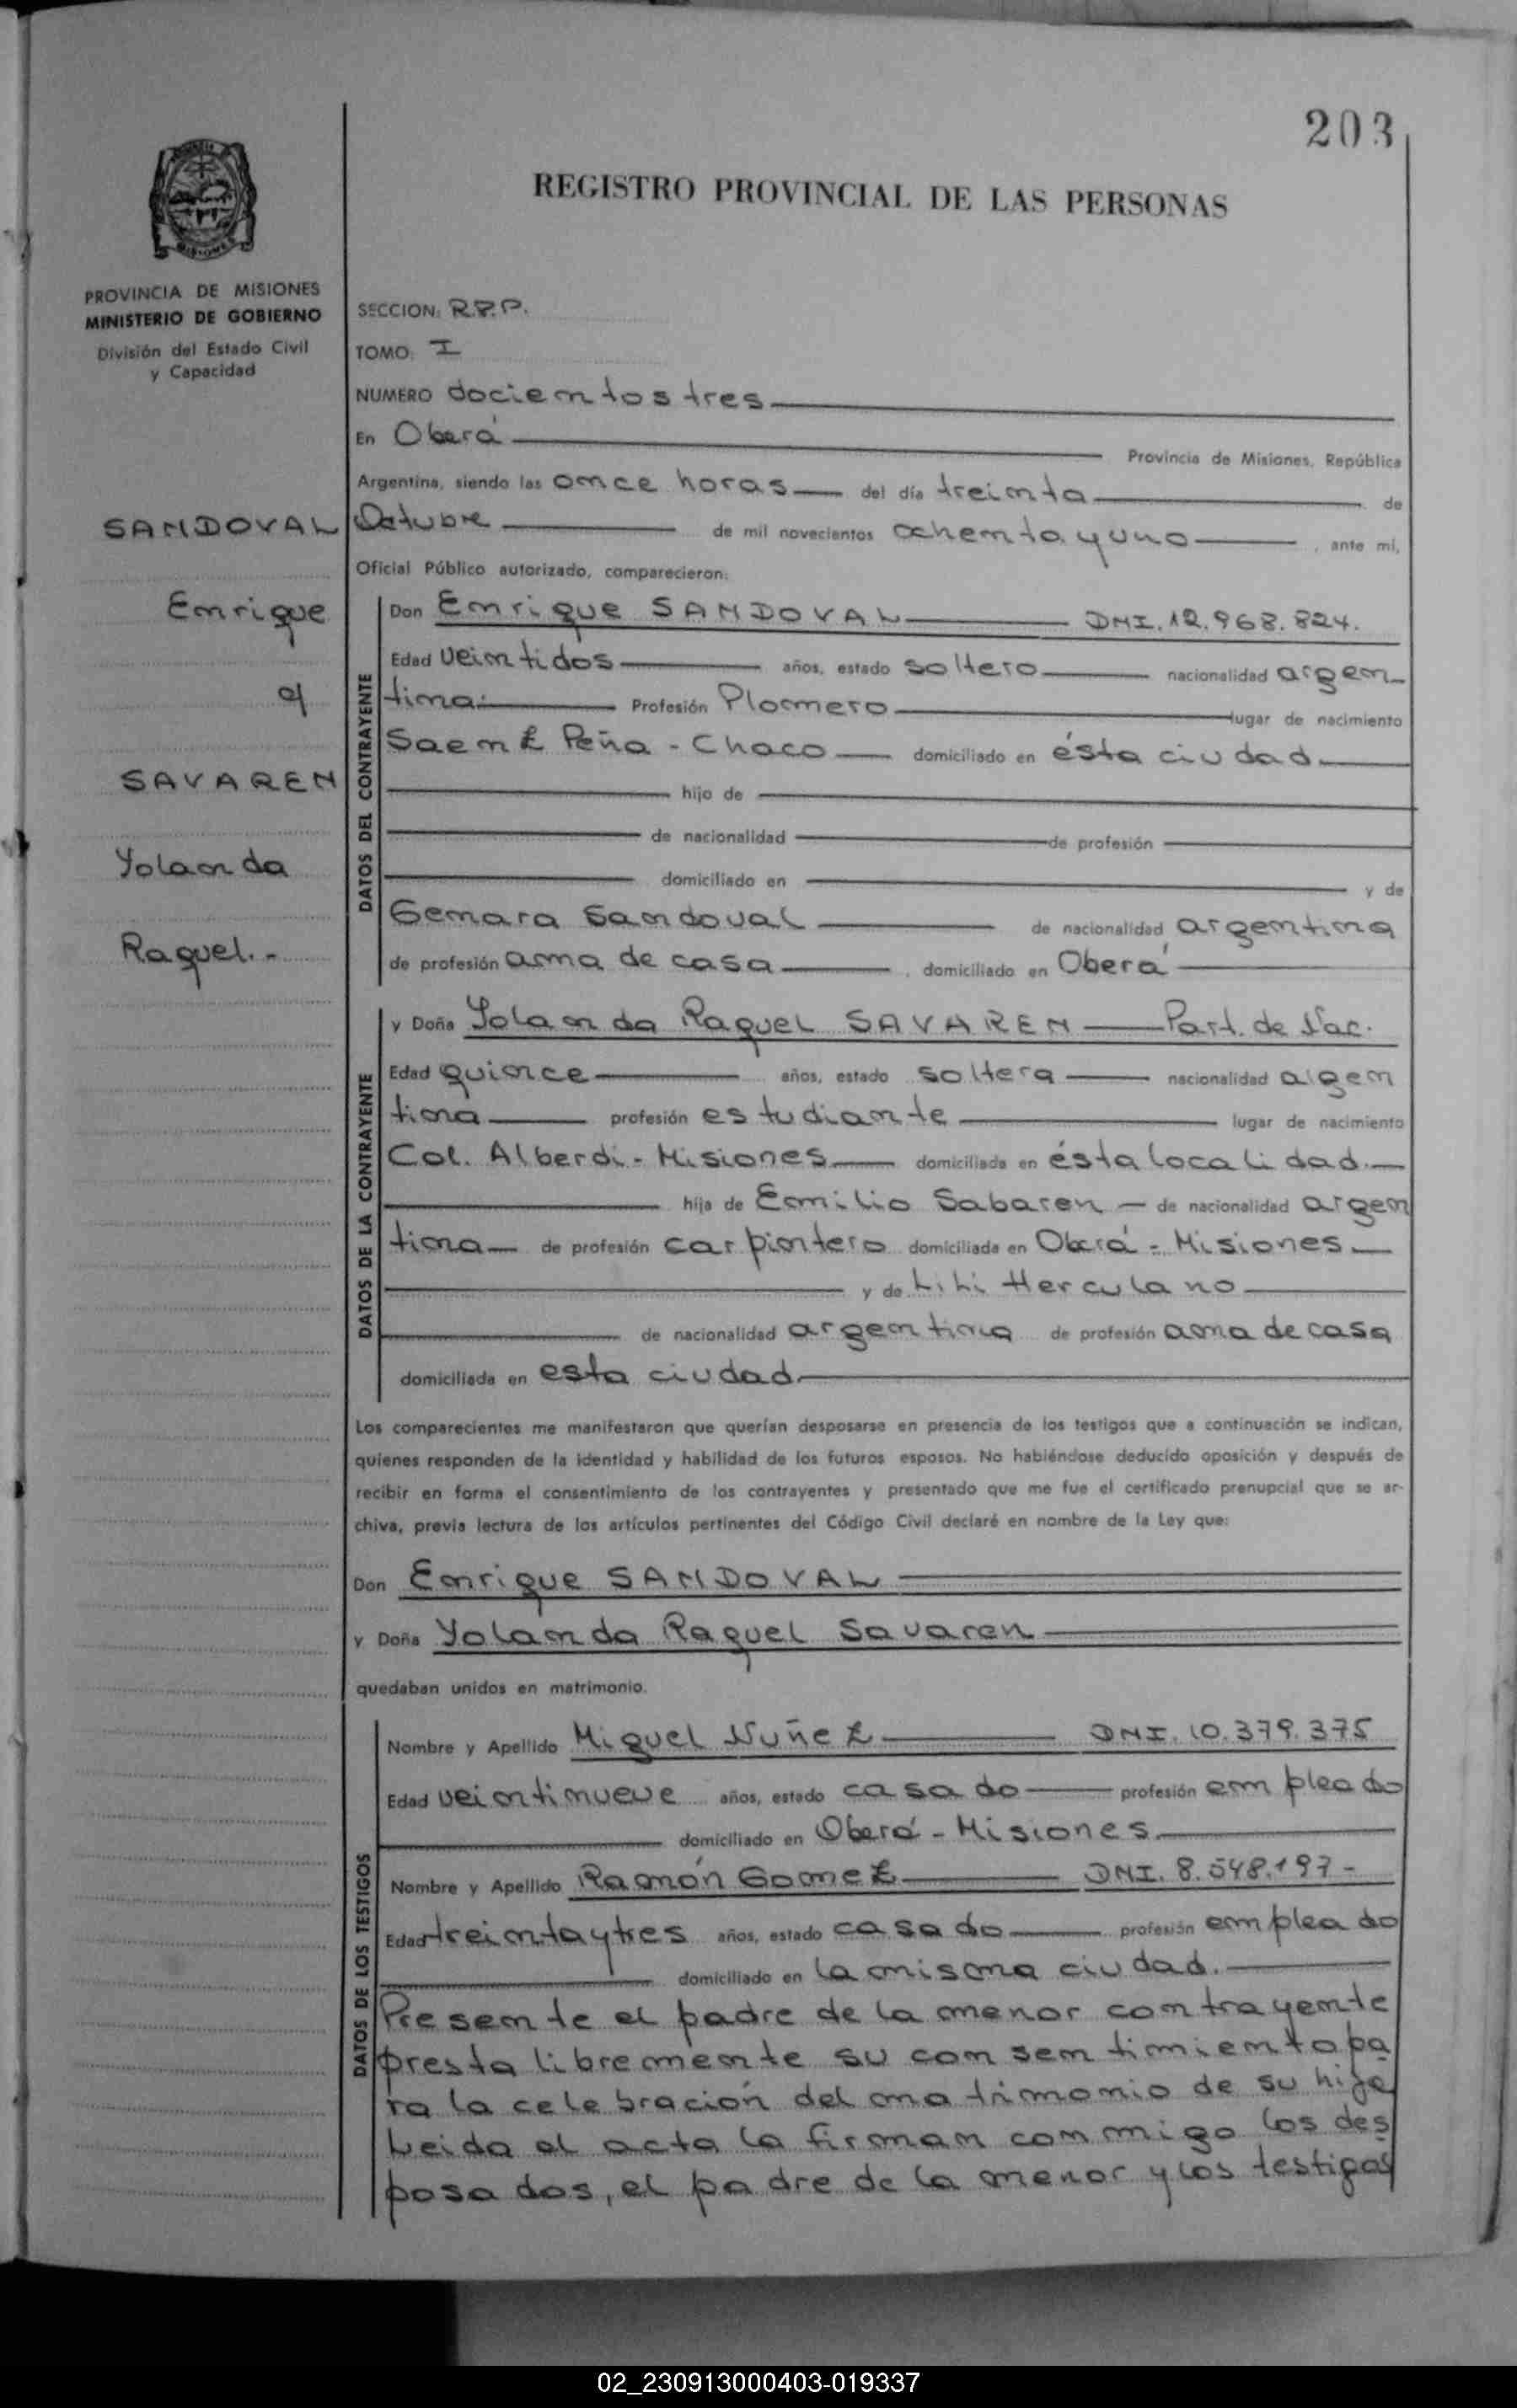 203
REGISTRO PROVINCIAL DE LAS PERSONAS
MISIONES
PROVINCIA DE MISIONES
MINISTERIO DE GOBIERNO
División del Estado Civil
y Capacidad
SANDOVAL
Enrique
c/
SAVAREN
Yolanda
Raquel.-
SECCION: R.P.P.
TOMO: I
NUMERO docientos tres
En Oberá Provincia de Misiones, República
Argentina, siendo las once horas del día treinta de
Octubre de mil novecientos ochenta y uno, ante mi,
Oficial Público autorizado, comparecieron:
DATOS DEL CONTRAYENTE
Don Enrique SANDOVAL DNI. 12.968.824.
Edad veintidos años, estado soltero nacionalidad argen
tina. Profesión Plomero lugar de nacimiento
Saenz Peña - Chaco domiciliado en ésta ciudad.
hijo de
de nacionalidad de profesión
domiciliado en y de
Genara Sandoval de nacionalidad argentina
de profesión ama de casa, domiciliado en Oberá
DATOS DE LA CONTRAYENTE
y Doña Yolanda Raquel SAVAREN Part. de Nac.
Edad quince años, estado soltera nacionalidad argen
tina profesión estudiante lugar de nacimiento
Col. Alberdi - Misiones domiciliada en ésta localidad.
hija de Emilio Sabaren de nacionalidad argen
tina de profesión carpintero domiciliada en Oberá - Misiones
y de Lili Herculano
de nacionalidad argentina de profesión ama de casa
domiciliada en esta ciudad.
Los comparecientes me manifestaron que querían desposarse en presencia de los testigos que a continuación se indican,
quienes responden de la identidad y habilidad de los futuros esposos. No habiéndose deducido oposición y después de
recibir en forma el consentimiento de los contrayentes y presentado que me fue el certificado prenupcial que se ar-
chiva, previa lectura de los artículos pertinentes del Código Civil declaré en nombre de la Ley que:
Don Enrique SANDOVAL
y Doña Yolanda Raquel Savaren
quedaban unidos en matrimonio.
DATOS DE LOS TESTIGOS
Nombre y Apellido Miguel Nuñez DNI. 10.379.375
Edad veintinueve años, estado casado profesión empleado
domiciliado en Oberá - Misiones
Nombre y Apellido Ramón Gomez DNI. 8.548.197-
Edad treinta y tres años, estado casado profesión empleado
domiciliado en la misma ciudad.
Presente el padre de la menor contrayente
presta libremente su consentimiento pa
ra la celebración del matrimonio de su hija
Leida el acta la firman conmigo los des
posados, el padre de la menor y los testigos
02_230913000403-019337